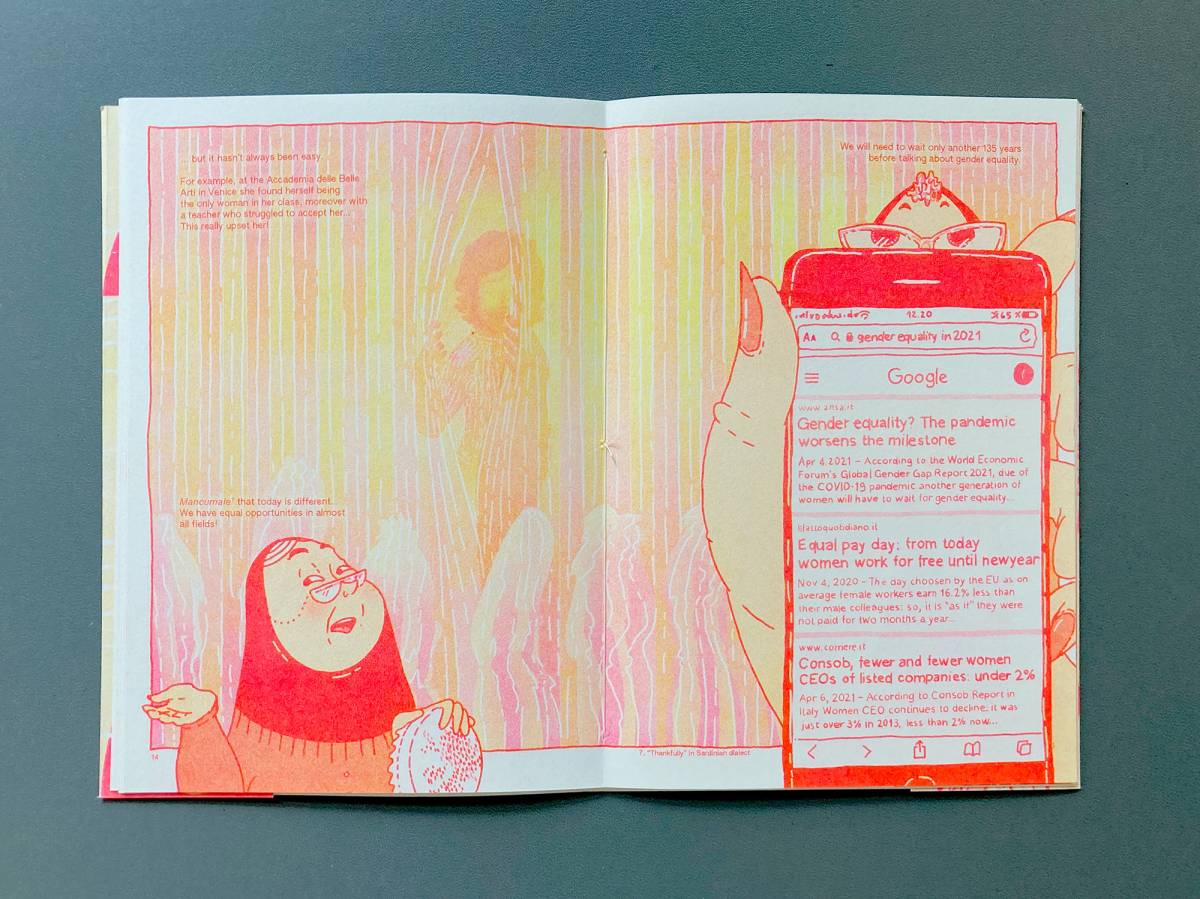 ... but it hasn't always been easy.
For example, at the Accademia delle Belle
Arti in Venice she found herself being
the only woman in her class, moreover with
a teacher who struggled to accept her...
This really upset her!
Mancumale⁷ that today is different.
We have equal opportunities in almost
all fields!
14
We will need to wait only another 135 years
before talking about gender equality.
12.20
65 %
AA gender equality in 2021
Google
www.ansa.it
Gender equality? The pandemic
worsens the milestone
Apr 4,2021 – According to the World Economic
Forum's Global Gender Gap Report 2021, due of
the COVID-19 pandemic another generation of
women will have to wait for gender equality...
ilfattoquotidiano.it
Equal pay day: from today
women work for free until newyear
Nov 4, 2020 – The day choosen by the EU as on
average female workers earn 16.2% less than
their male colleagues: so, it is "as if" they were
not paid for two months a year...
www.corriere.it
Consob, fewer and fewer women
CEOs of listed companies: under 2%
Apr 6, 2021 – According to Consob Report in
Italy Women CEO continues to decline: it was
just over 3% in 2013, less than 2% now...
7. "Thankfully" in Sardinian dialect